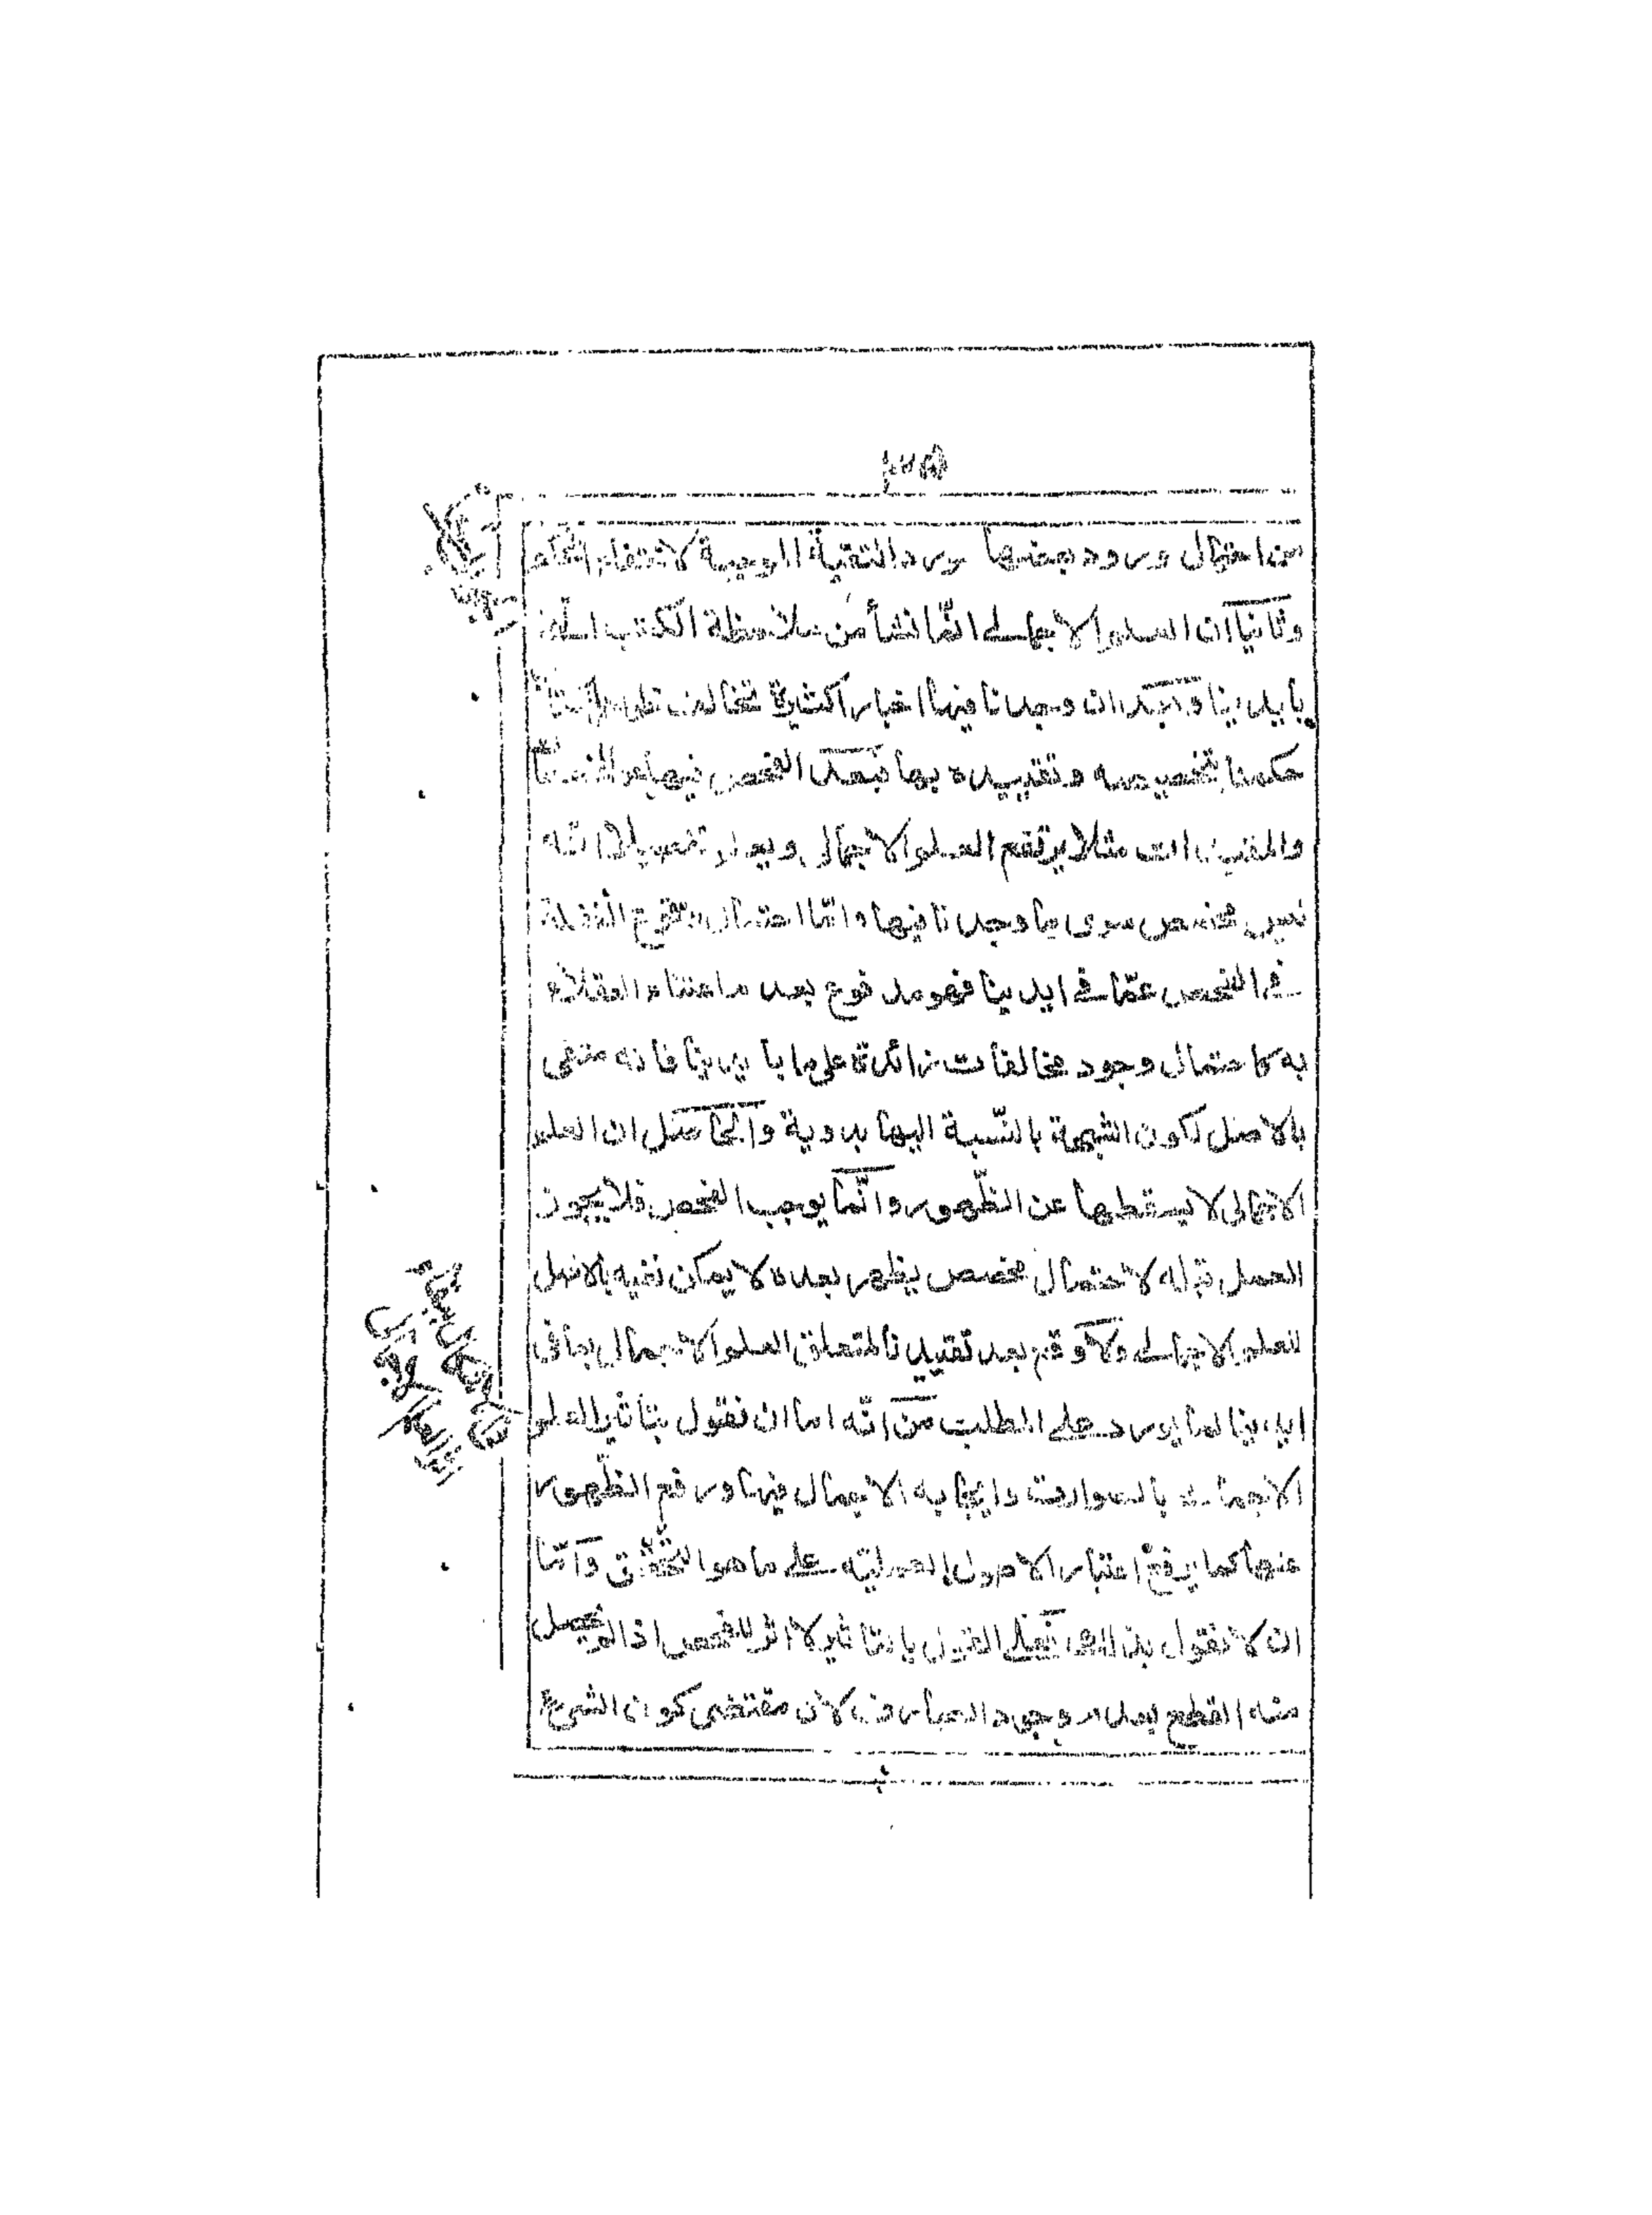 من احتمال ورود بعضها مورد التقية الموجبة لاختفاء الحكم
وثانيا ان العلم الاجمالے انّما نشأ من ملاحظة الكتب الّتي
بايدينا وبعد ان وجدنا فيها اخبارا كثيرة تخالف
حكمنا بتخصيصه وتقييده بها فبعد الفحص فيها
والمقيدات مثلا يرتفع العلم الاجمالى ويعلم تفصيلا انّه
ليس مخصص سوى ما وجدنا فيها وامّا احتمال وقوع الغفلة
فے الفحص عمّا فے ايدينا فهو مدفوع بعدم اعتناء العقلاء
به كاحتمال وجود مخالفات زائدة على ما بايدينا فانه منفى
بالاصل لكون الشبهة بالنّسبة اليها بدوية والحاصل ان العلم
الاجمالى لا يسقطها عن الظّهور وانّما يوجب الفحص فلا يجوز
العمل قبله لاحتمال مخصص يظهر بعده لا يمكن نفيه بالاصل
للعلم الاجمالے ولا وقع بعد تقييدنا لمتعلق العلم الاجمالى بما فى
ايدينا لما يورد علے المطلب من انّه اما ان نقول بتاثير العلم
الاجمالے بالعمومات وايجابه الاجمال فيها ورفع الظّهور
عنها كما يرفع اعتبار الاصول العمليّه علے ما هو التحقيق وامّا
ان لا نقول بذلك فعلى القول بالتاثير لا اثر للفحص اذا لم يحصل
منه القطع بعدم وجود الصارف لان مقتضى كون الشئ